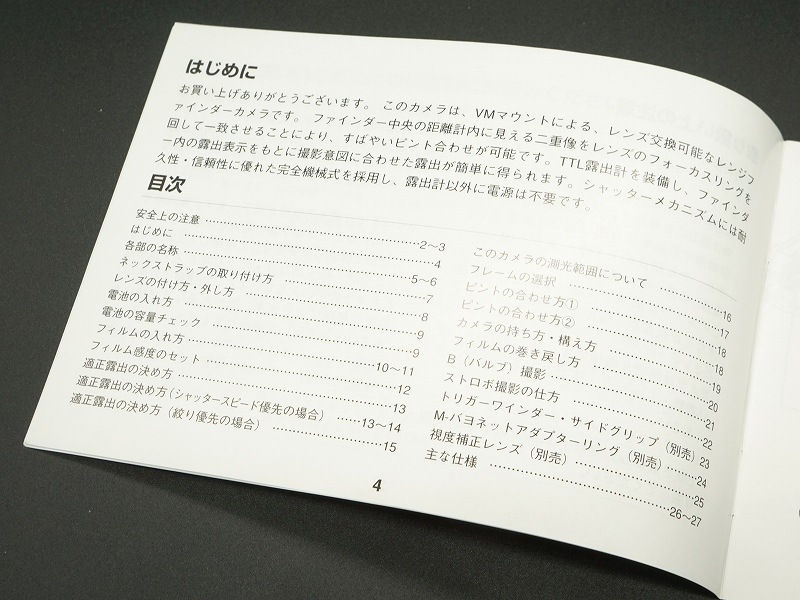 はじめに
お買い上げありがとうございます。 このカメラは、VMマウントによる、レンズ交換可能なレンジフ
ァインダーカメラです。 ファインダー中央の距離計内に見える二重像をレンズのフォーカスリングを
回して一致させることにより、すばやいピント合わせが可能です。TTL露出計を装備し、ファインダ
ー内の露出表示をもとに撮影意図に合わせた露出が簡単に得られます。シャッターメカニズムには耐
久性・信頼性に優れた完全機械式を採用し、露出計以外に電源は不要です。
目次
安全上の注意 ……………………………2〜3
はじめに ……………………………4
各部の名称 ……………………………5〜6
ネックストラップの取り付け方 ……………………………7
レンズの付け方・外し方 ……………………………8
電池の入れ方 ……………………………9
電池の容量チェック ……………………………9
フィルムの入れ方 ……………………………10〜11
フィルム感度のセット ……………………………12
適正露出の決め方 ……………………………13
適正露出の決め方(シャッタースピード優先の場合) ……13〜14
適正露出の決め方(絞り優先の場合) ……………………15
このカメラの測光範囲について ……………16
フレームの選択 ……………………………17
ピントの合わせ方① ……………………………18
ピントの合わせ方② ……………………………18
カメラの持ち方・構え方 ……………………………19
フィルムの巻き戻し方 ……………………………20
B(バルブ)撮影 ……………………………21
ストロボ撮影の仕方 ……………………………22
トリガーワインダー・サイドグリップ(別売)23
M-バヨネットアダプターリング(別売) ………24
視度補正レンズ(別売) ……………………………25
主な仕様 ……………………………26〜27
4